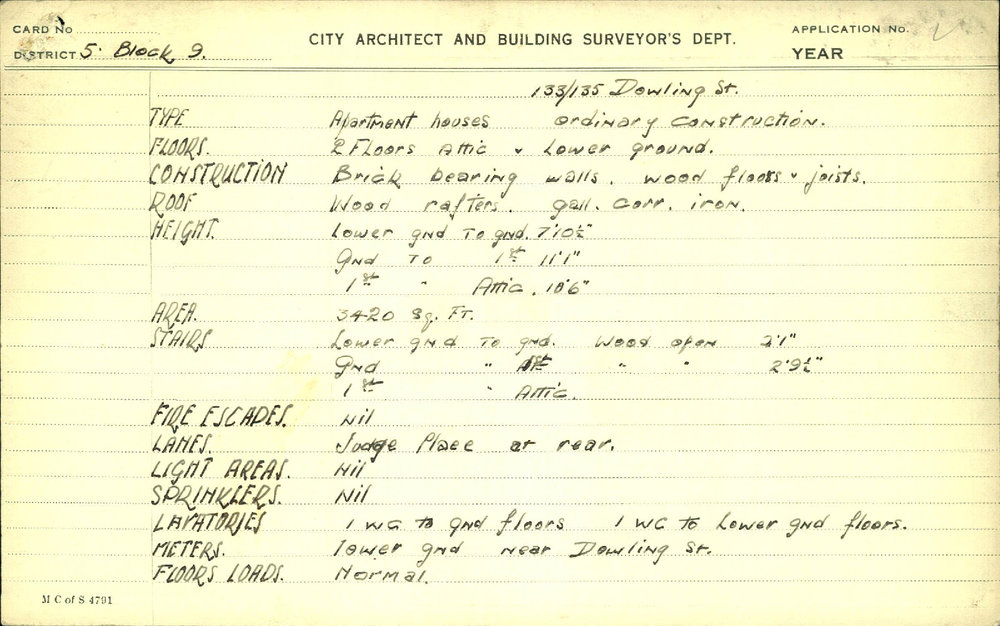 CARD No
CITY ARCHITECT AND BUILDING SURVEYOR'S DEPT.
APPLICATION No.
DISTRICT 5 Block 9.
YEAR
133/135 Dowling St.
TYPE Apartment houses ordinary construction.
FLOORS. 2 Floors Attic & Lower ground.
CONSTRUCTION Brick bearing walls. wood floors & joists.
ROOF Wood rafters. gall. corr. iron.
HEIGHT. Lower gnd To gnd. 7'10½"
Gnd To 1st 11'1"
1st " Attic. 10'6"
AREA. 3420 Sq. Ft.
STAIRS Lower gnd To gnd. Wood open 2'1"
Gnd " 1st " " 2'9½"
1st " Attic.
FIRE ESCAPES. Nil
LANES. Judge Place at rear.
LIGHT AREAS. Nil
SPRINKLERS. Nil
LAVATORIES 1 WC To gnd floors 1 WC To Lower gnd floors.
METERS. lower gnd near Dowling St.
FLOORS LOADS. Normal.
M C of S 4791